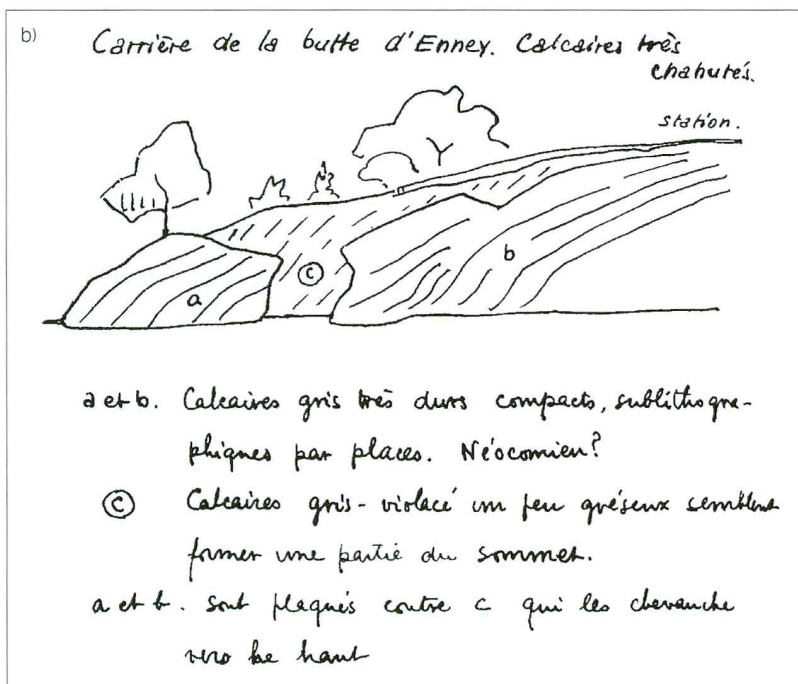 b)
Carrière de la butte d'Enney. Calcaires très
chahutés.
station.
c
b
a
a et b. Calcaires gris très durs compacts, sublithogra-
phiques par places. Néocomien?
c Calcaires gris-violacé un peu gréseux semblent
former une partie du sommet.
a et b. sont plaqués contre c qui les chevauche
vers le haut